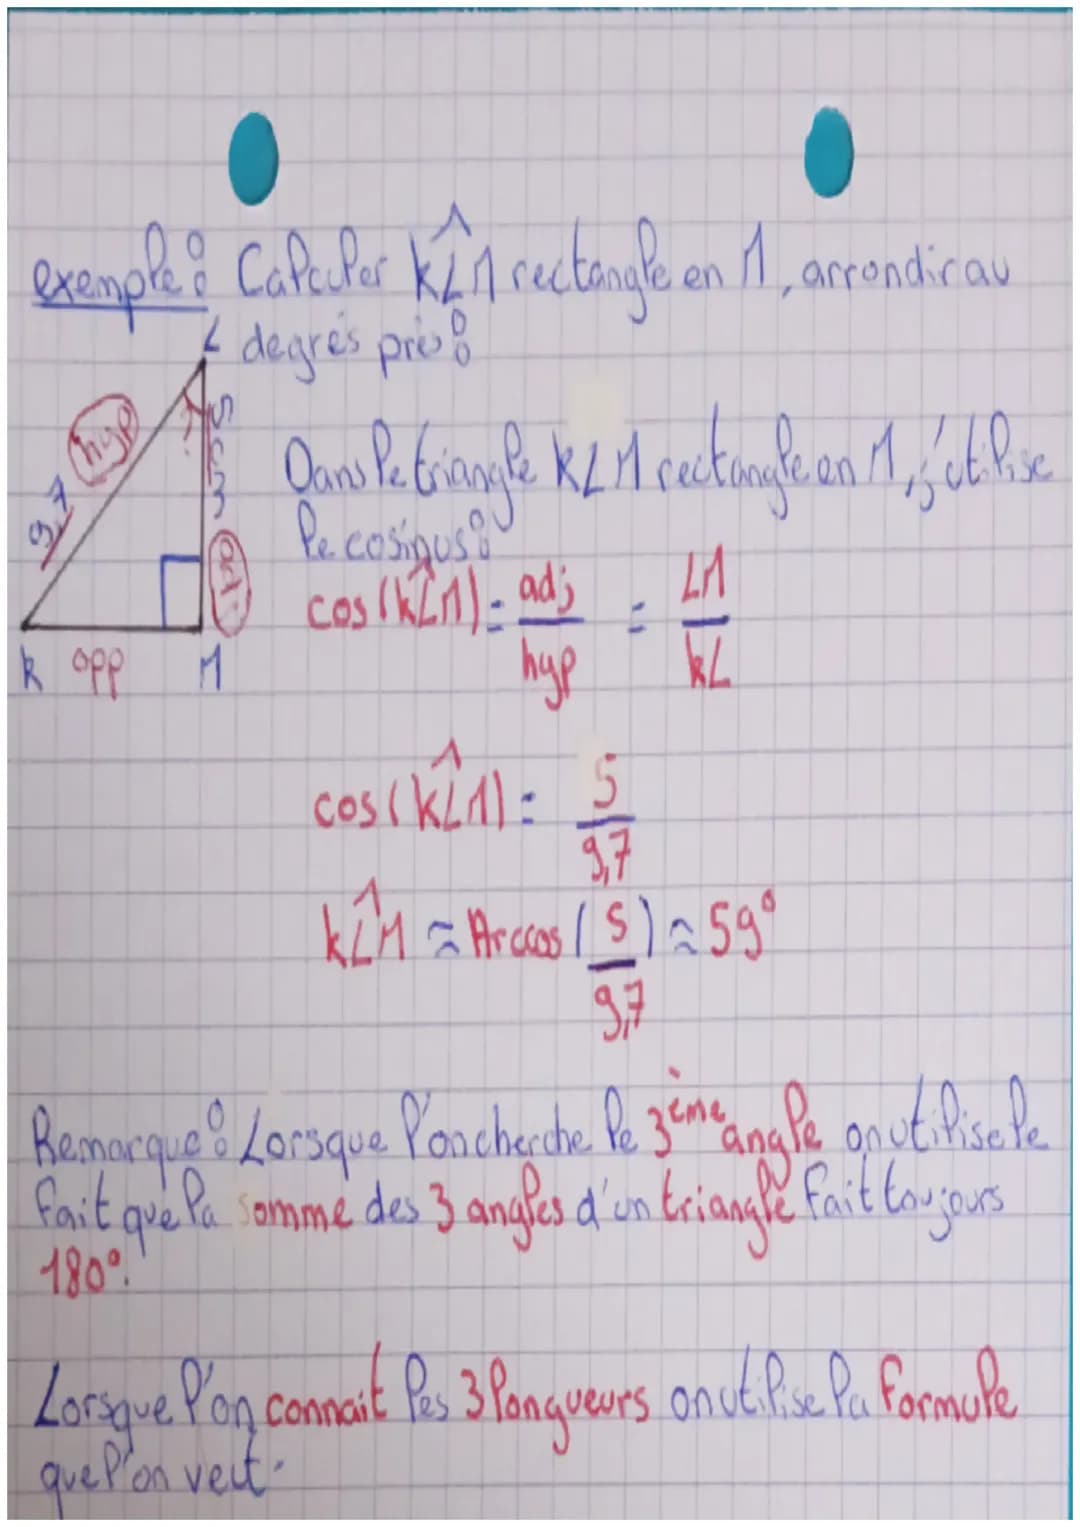 exemple : Calculer KLM rectangle en M, arrondir au
degrés près :
L
hyp
9,7
?
5cm
adj
K opp M
Dans le triangle KLM rectangle en M, j'utilise
le cosinus :
cos(KLM) = adj/hyp = LM/KL
cos(KLM) = 5/9,7
KLM ≈ Arccos(5/9,7) ≈ 59°
Remarque : Lorsque l'on cherche le 3ème angle on utilise le
fait que la somme des 3 angles d'un triangle fait toujours
180°.
Lorsque l'on connait les 3 longueurs on utilise la formule
que l'on veut.